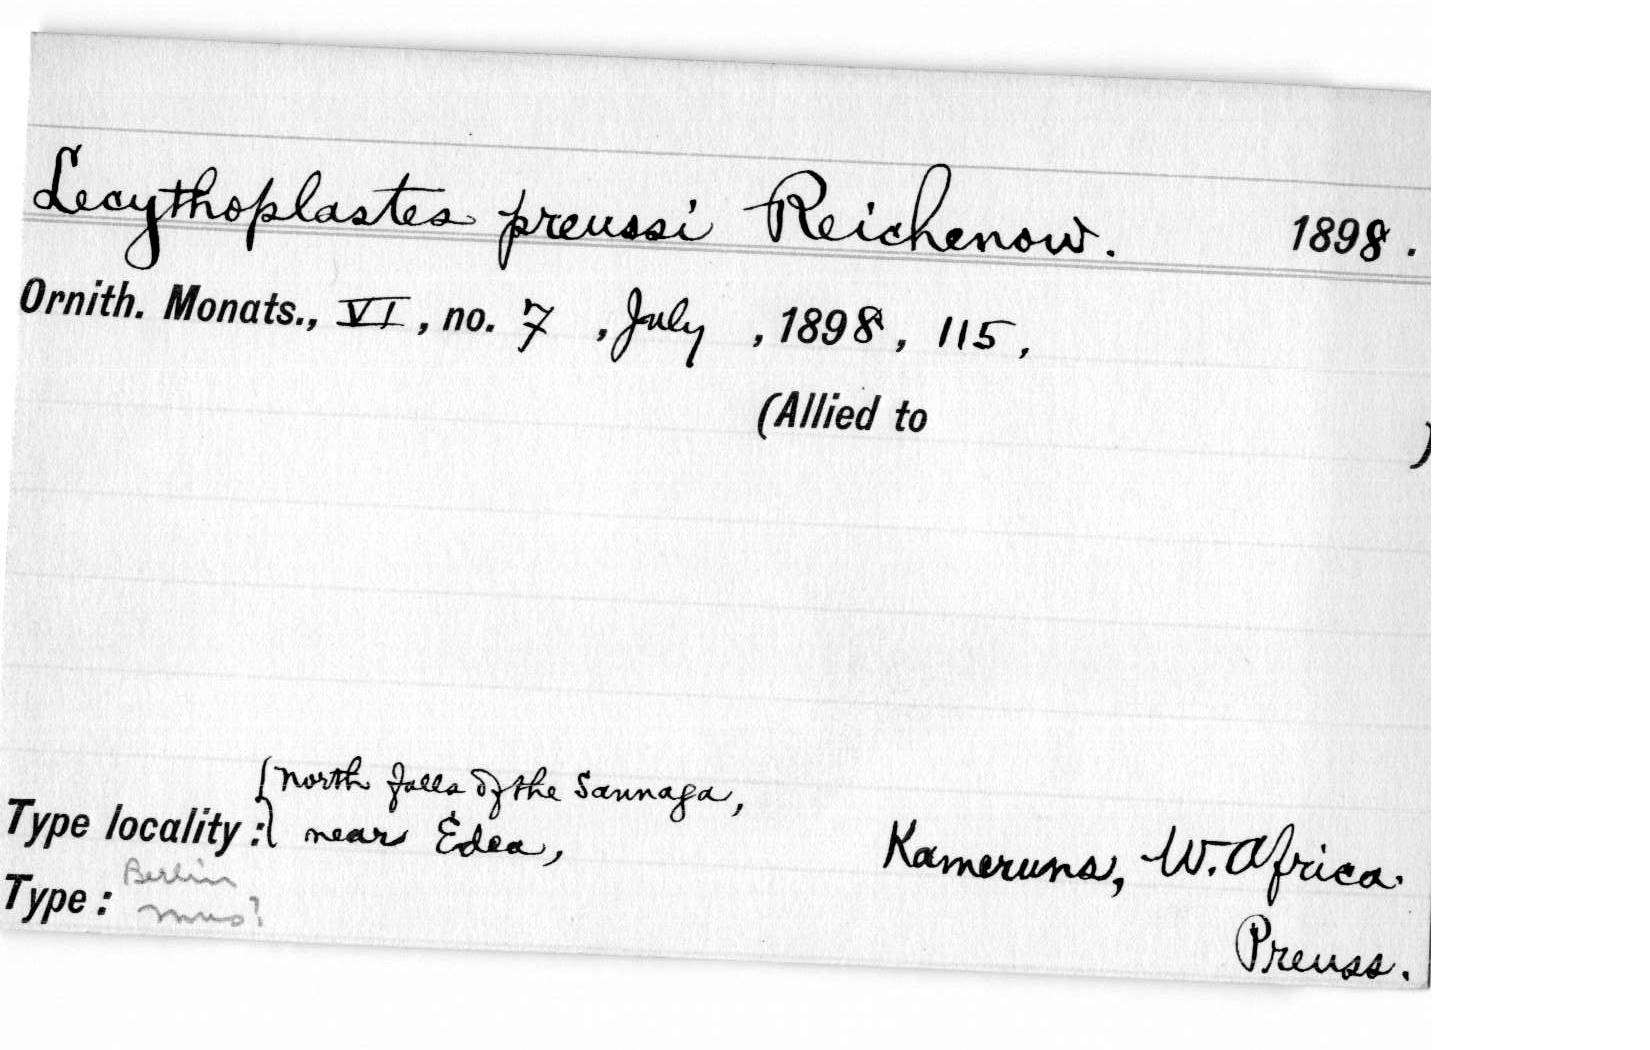 Lecythoplastes preussi Reichenow. 1898.
Ornith. Monats., VI, no. 7, July, 1898, 115,
(Allied to )
North falls of the Sannaga,
Type locality: near Edea, Kameruns, W. Africa.
Berlin
Type: mus?
Preuss.